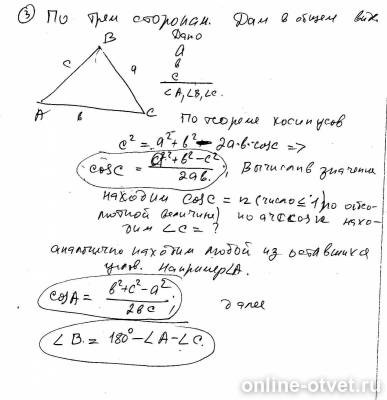 ③ По трем сторонам. Дам в общем виде
B
c
a
A
b
C
Дано
a
b
c
∠A, ∠B, ∠C.
По теореме косинусов
c² = a² + b² - 2a·b·cosc =>
cosc = a² + b² - c² / 2ab. , Вычислив значения
находим cosc = n (число ≤ 1) по абсо-
лютной величине) по arccos n нахо-
дим ∠C = ?
аналогично находим любой из оставшихся
углов. Например ∠A.
cosA = b² + c² - a² / 2bc ; далее
∠B. = 180° - ∠A - ∠C.
online-otvet.ru